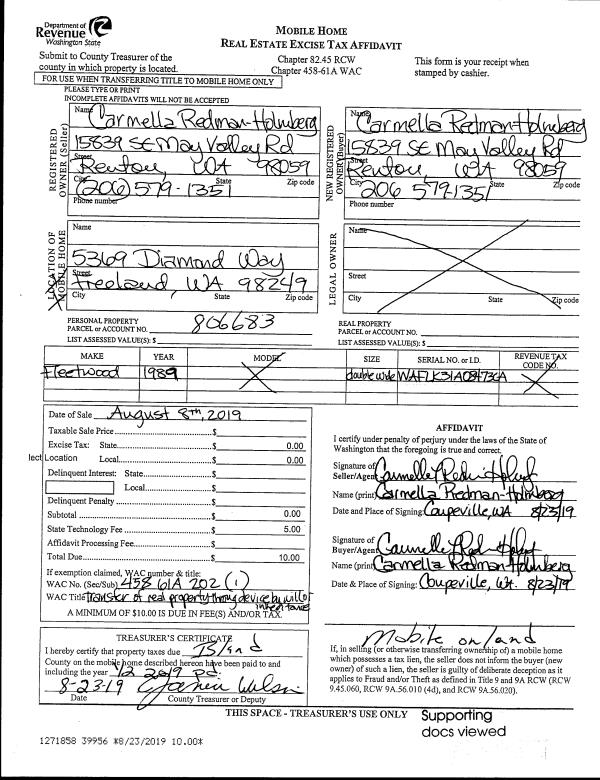 Department of
Revenue
Washington State
MOBILE HOME
REAL ESTATE EXCISE TAX AFFIDAVIT
Submit to County Treasurer of the
county in which property is located.
Chapter 82.45 RCW
Chapter 458-61A WAC
This form is your receipt when
stamped by cashier.
FOR USE WHEN TRANSFERRING TITLE TO MOBILE HOME ONLY
PLEASE TYPE OR PRINT
INCOMPLETE AFFIDAVITS WILL NOT BE ACCEPTED
REGISTERED
OWNER (Seller)
Name Carmella Redman-Holmberg
15839 SE May Valley Rd
Street
Renton, WA 98059
City State Zip code
(206) 579-1351
Phone number
NEW REGISTERED
OWNER (Buyer)
Name Carmella Redman-Holmberg
15839 SE May Valley Rd
Street
Renton, WA 98059
City State Zip code
206 579-1351
Phone number
LOCATION OF
MOBILE HOME
Name
5369 Diamond Way
Street
Freeland, WA 98249
City State Zip code
LEGAL OWNER
Name
Street
City State Zip code
PERSONAL PROPERTY
PARCEL or ACCOUNT NO. 806683
LIST ASSESSED VALUE(S): $
REAL PROPERTY
PARCEL or ACCOUNT NO.
LIST ASSESSED VALUE(S): $
MAKE YEAR MODEL SIZE SERIAL NO. or I.D. REVENUE TAX
CODE NO.
Fleetwood 1989 double wide
Date of Sale August 8th, 2019
Taxable Sale Price $
Excise Tax: State $ 0.00
lect Location Local $ 0.00
Delinquent Interest: State $
Local $
Delinquent Penalty $
Subtotal $ 0.00
State Technology Fee $ 5.00
Affidavit Processing Fee $
Total Due $ 10.00
If exemption claimed, WAC number & title:
WAC No. (Sec/Sub) 458 61A 202 (1)
WAC Title Transfer of real property through device by will or
inheritance
A MINIMUM OF $10.00 IS DUE IN FEE(S) AND/OR TAX.
AFFIDAVIT
I certify under penalty of perjury under the laws of the State of
Washington that the foregoing is true and correct.
Signature of
Seller/Agent
Name (print) Carmella Redman-Holmberg
Date and Place of Signing: Coupeville, WA 8/23/19
Signature of
Buyer/Agent
Name (print) Carmella Redman-Holmberg
Date & Place of Signing: Coupeville, WA. 8/23/19
TREASURER'S CERTIFICATE
I hereby certify that property taxes due Island
County on the mobile home described hereon have been paid to and
including the year 1/2 2019 Pd.
8-23-19
Date County Treasurer or Deputy
Mobile on land
If, in selling (or otherwise transferring ownership of) a mobile home
which possesses a tax lien, the seller does not inform the buyer (new
owner) of such a lien, the seller is guilty of deliberate deception as it
applies to Fraud and/or Theft as defined in Title 9 and 9A RCW (RCW
9.45.060, RCW 9A.56.010 (4d), and RCW 9A.56.020).
THIS SPACE - TREASURER'S USE ONLY
Supporting
docs viewed
1271858 39956 *8/23/2019 10.00*